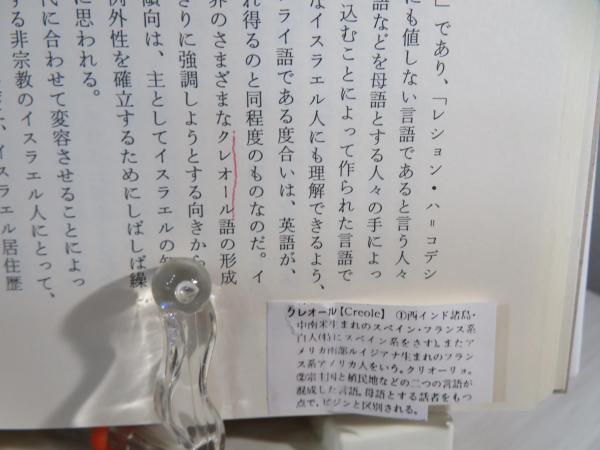 」であり、「レション・ハ＝コデシ
にも値しない言語であると言う人々
語などを母語とする人々の手によっ
込むことによって作られた言語で
なイスラエル人にも理解できるよう、
ライ語である度合いは、英語が、
れ得るのと同程度のものなのだ。イ
界のさまざまなクレオール語の形成
さりに強調しようとする向きから
傾向は、主としてイスラエルの
例外性を確立するためにしばしば繰
に思われる。
代に合わせて変容させることによっ
する非宗教のイスラエル人にとって、
イスラエル居住歴
クレオール【Creole】 ①西インド諸島・
中南米生まれのスペイン・フランス系
白人(特にスペイン系をさす)。またア
メリカ南部ルイジアナ生まれのフラン
ス系アメリカ人をいう。クリオーリョ。
②宗主国と植民地などの二つの言語が
混成した言語。母語とする話者をもつ
点で、ピジンと区別される。